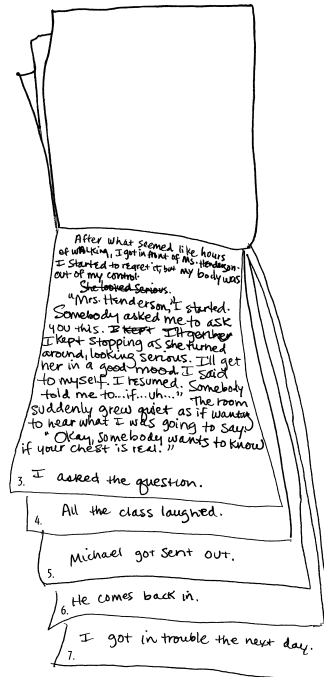 After what seemed like hours
of walking, I got in front of Ms. Henderson.
I started to regret it, but my body was
out of my control.
She looked serious.
"Mrs. Henderson," I started.
Somebody asked me to ask
you this. I kept I'll get her
I kept stopping as she turned
around, looking serious. I'll get
her in a good mood I said
to myself. I resumed. Somebody
told me to...if...uh..." The room
suddenly grew quiet as if wanting
to hear what I was going to say.
"Okay, somebody wants to know
if your chest is real."
3. I asked the question.
4. All the class laughed.
5. Michael got sent out.
6. He comes back in.
7. I got in trouble the next day.